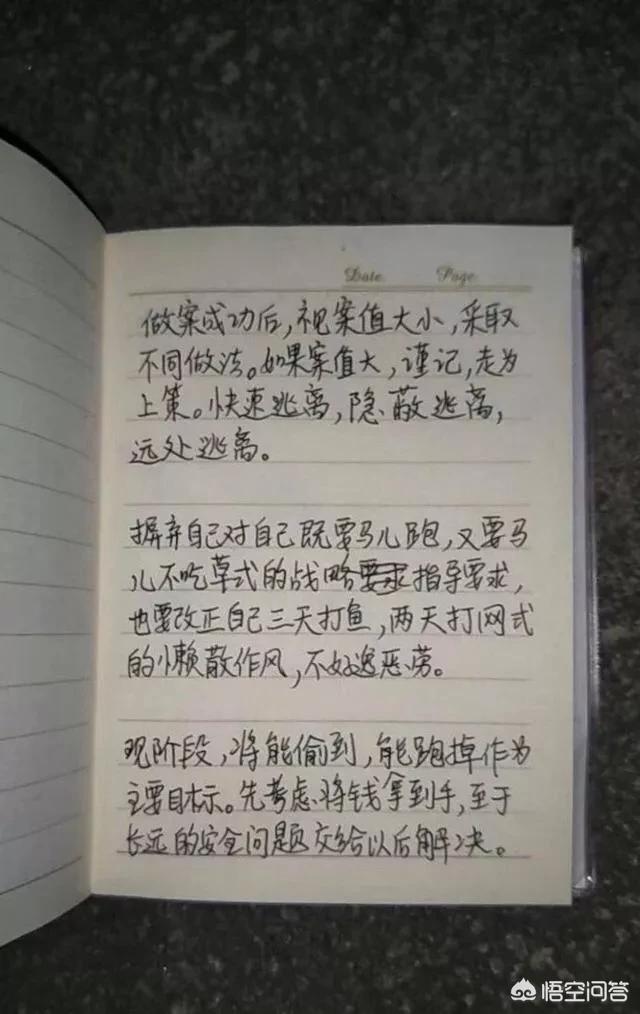 Date Page
做案成功后,视案值大小,采取
不同做法。如果案值大,谨记,走为
上策。快速逃离,隐蔽逃离,
远处逃离。
摒弃自己对自己既要马儿跑,又要马
儿不吃草式的战略要求指导要求,
也要改正自己三天打鱼,两天打网式
的懒散作风,不好逸恶劳。
现阶段,将能偷到,能跑掉作为
主要目标。先考虑将钱拿到手,至于
长远的安全问题交给以后解决。
悟空问答